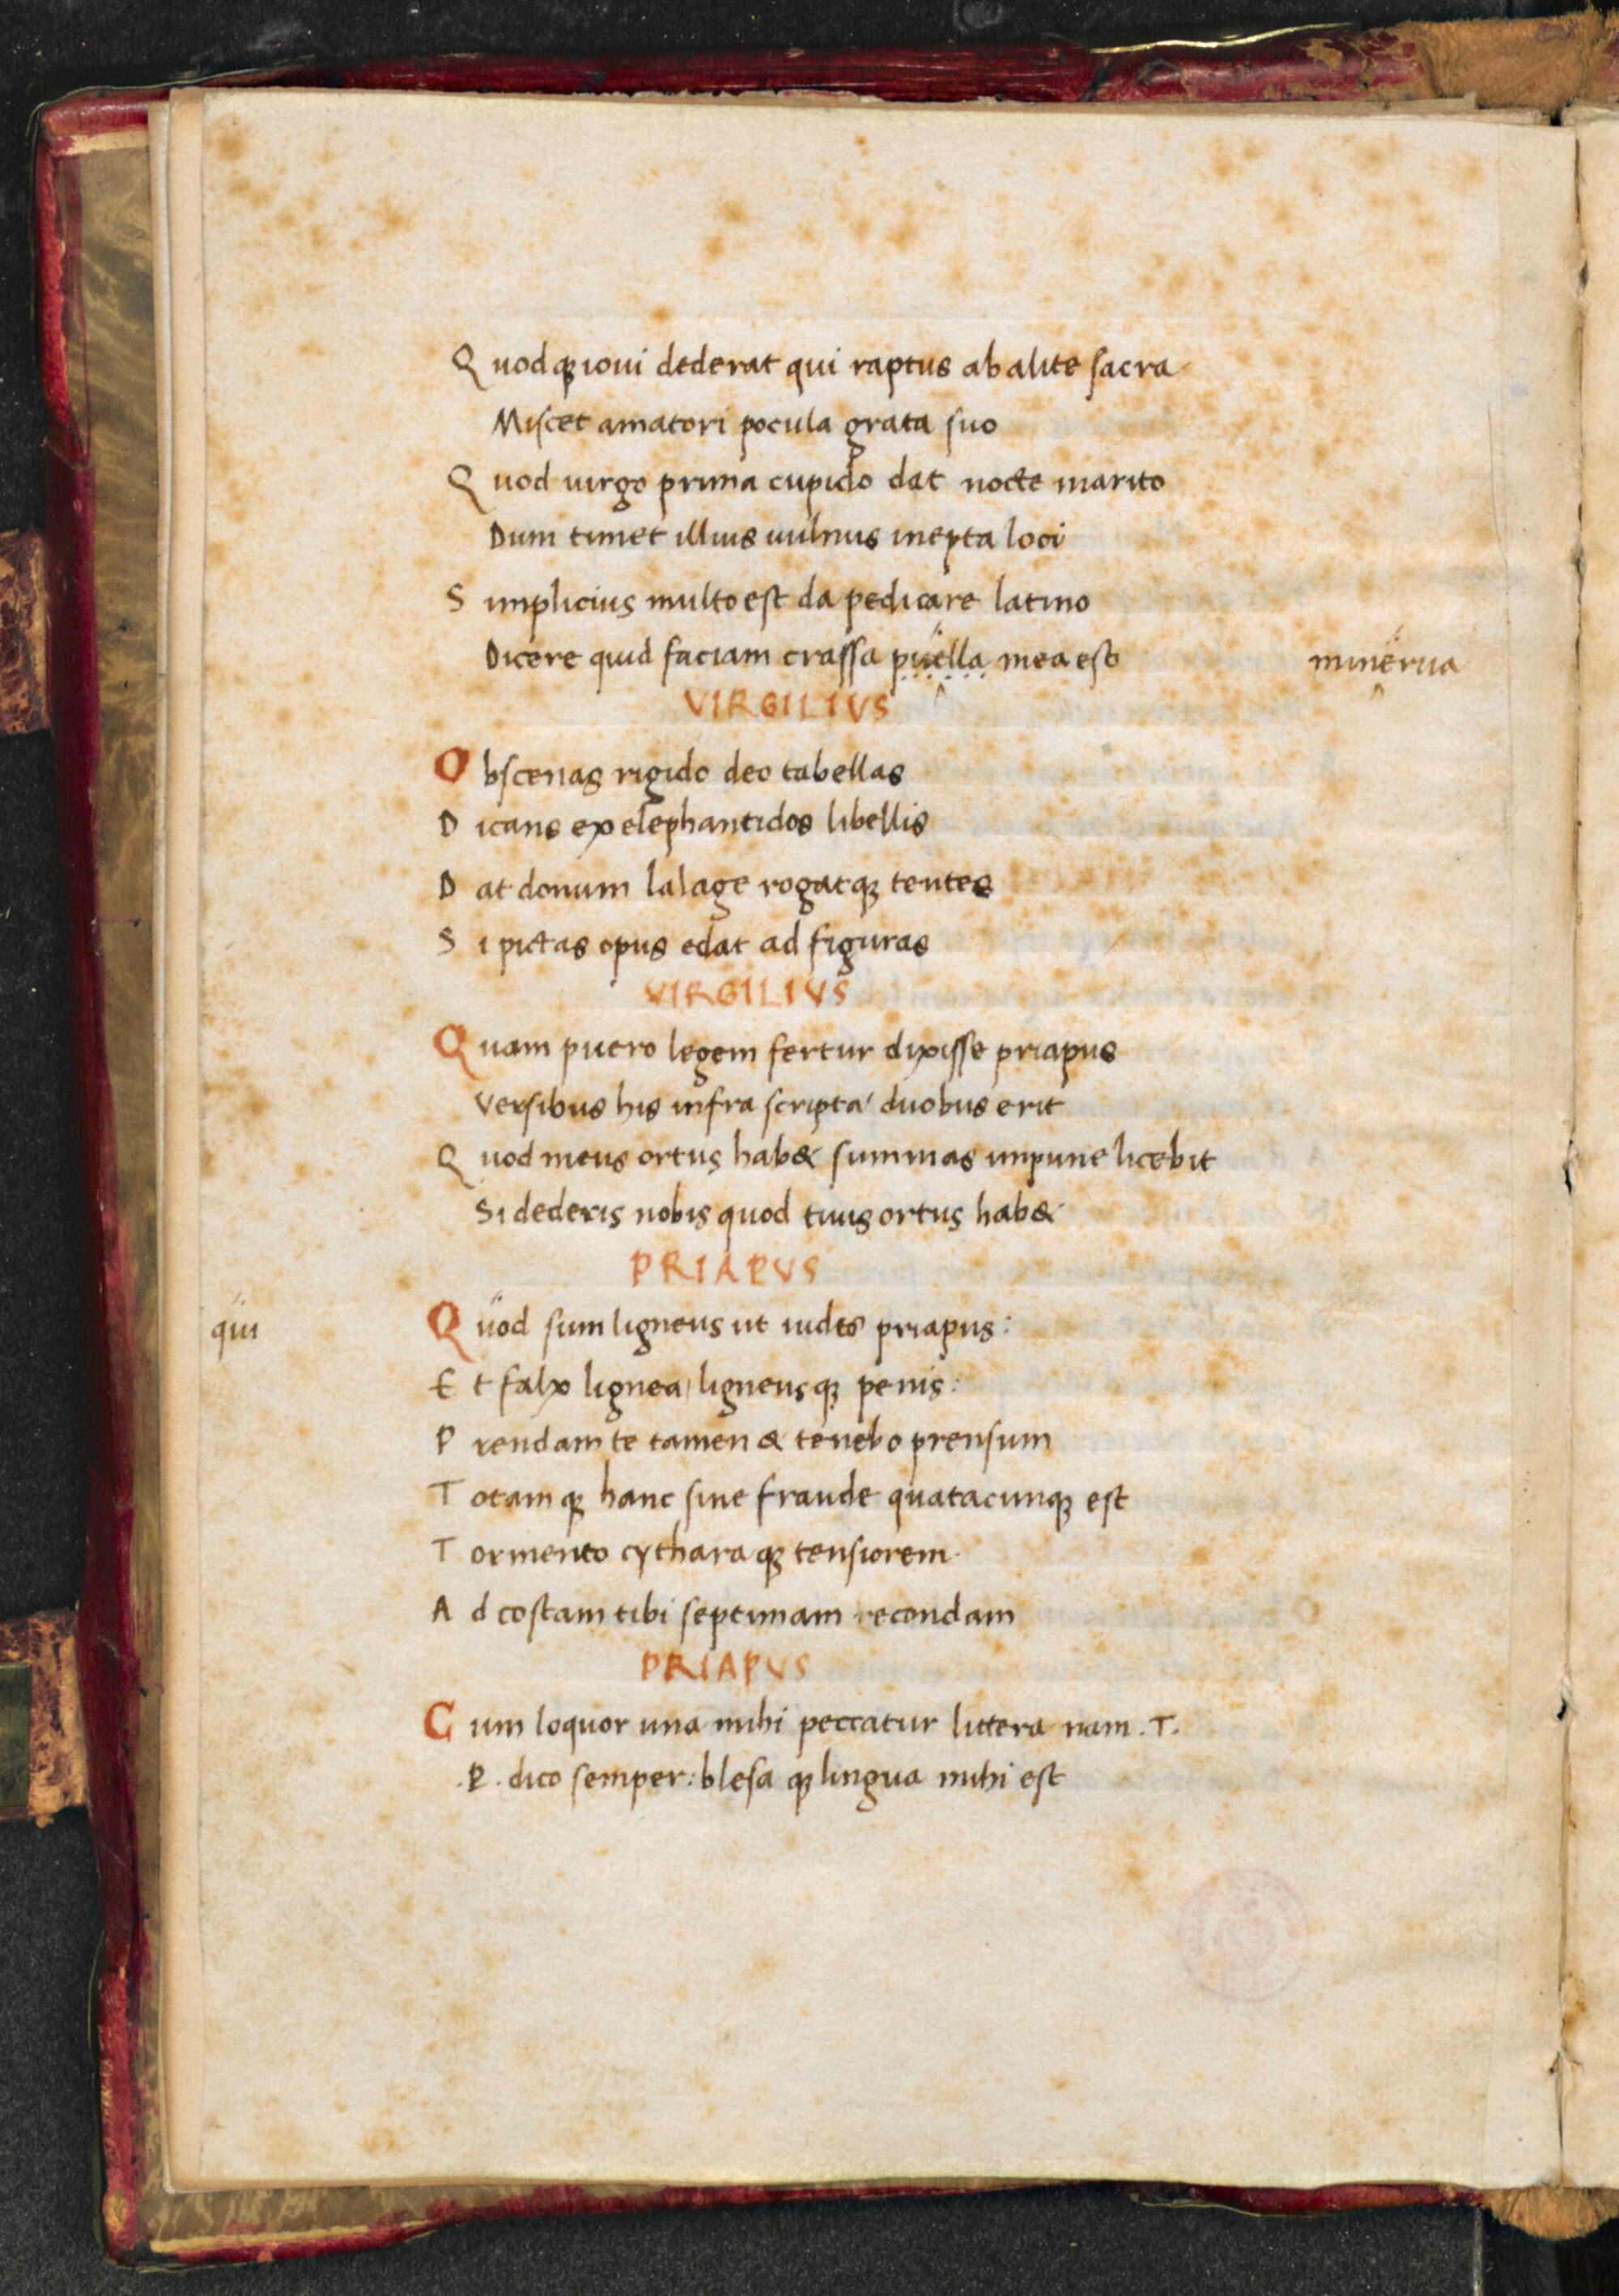 Quodq; ioui dederat qui raptus ab alite sacra
Miscet amatori pocula grata suo
Quod uirgo prima cupido dat nocte marito
Dum timet illius uulnus inepta loci
Simplicius multo est da pedicare latino
Dicere quid faciam crassa puella mea est minerua
VIRGILIVS
Obscenas rigido deo tabellas
Dicans ex elephantidos libellis
Dat donum lalage rogatq; tentes
Si pictas opus edat ad figuras
VIRGILIVS
Quam puero legem fertur dixisse priapus
Versibus his infra scripta duobus erit
Quod meus ortus hab& summas impune licebit
Si dederis nobis quod tuus ortus hab&
PRIAPVS
qui Quod sum ligneus ut uides priapus:
Et falx lignea ligneusq; penis:
Prendam te tamen & tenebo prensum
Totamq; hanc sine fraude quatacunq; est
Tormento cytharaq; tensiorem.
Ad costam tibi septimam recondam
PRIAPVS
Cum loquor una mihi peccatur littera nam .T.
.P. dico semper: blesaq; lingua mihi est